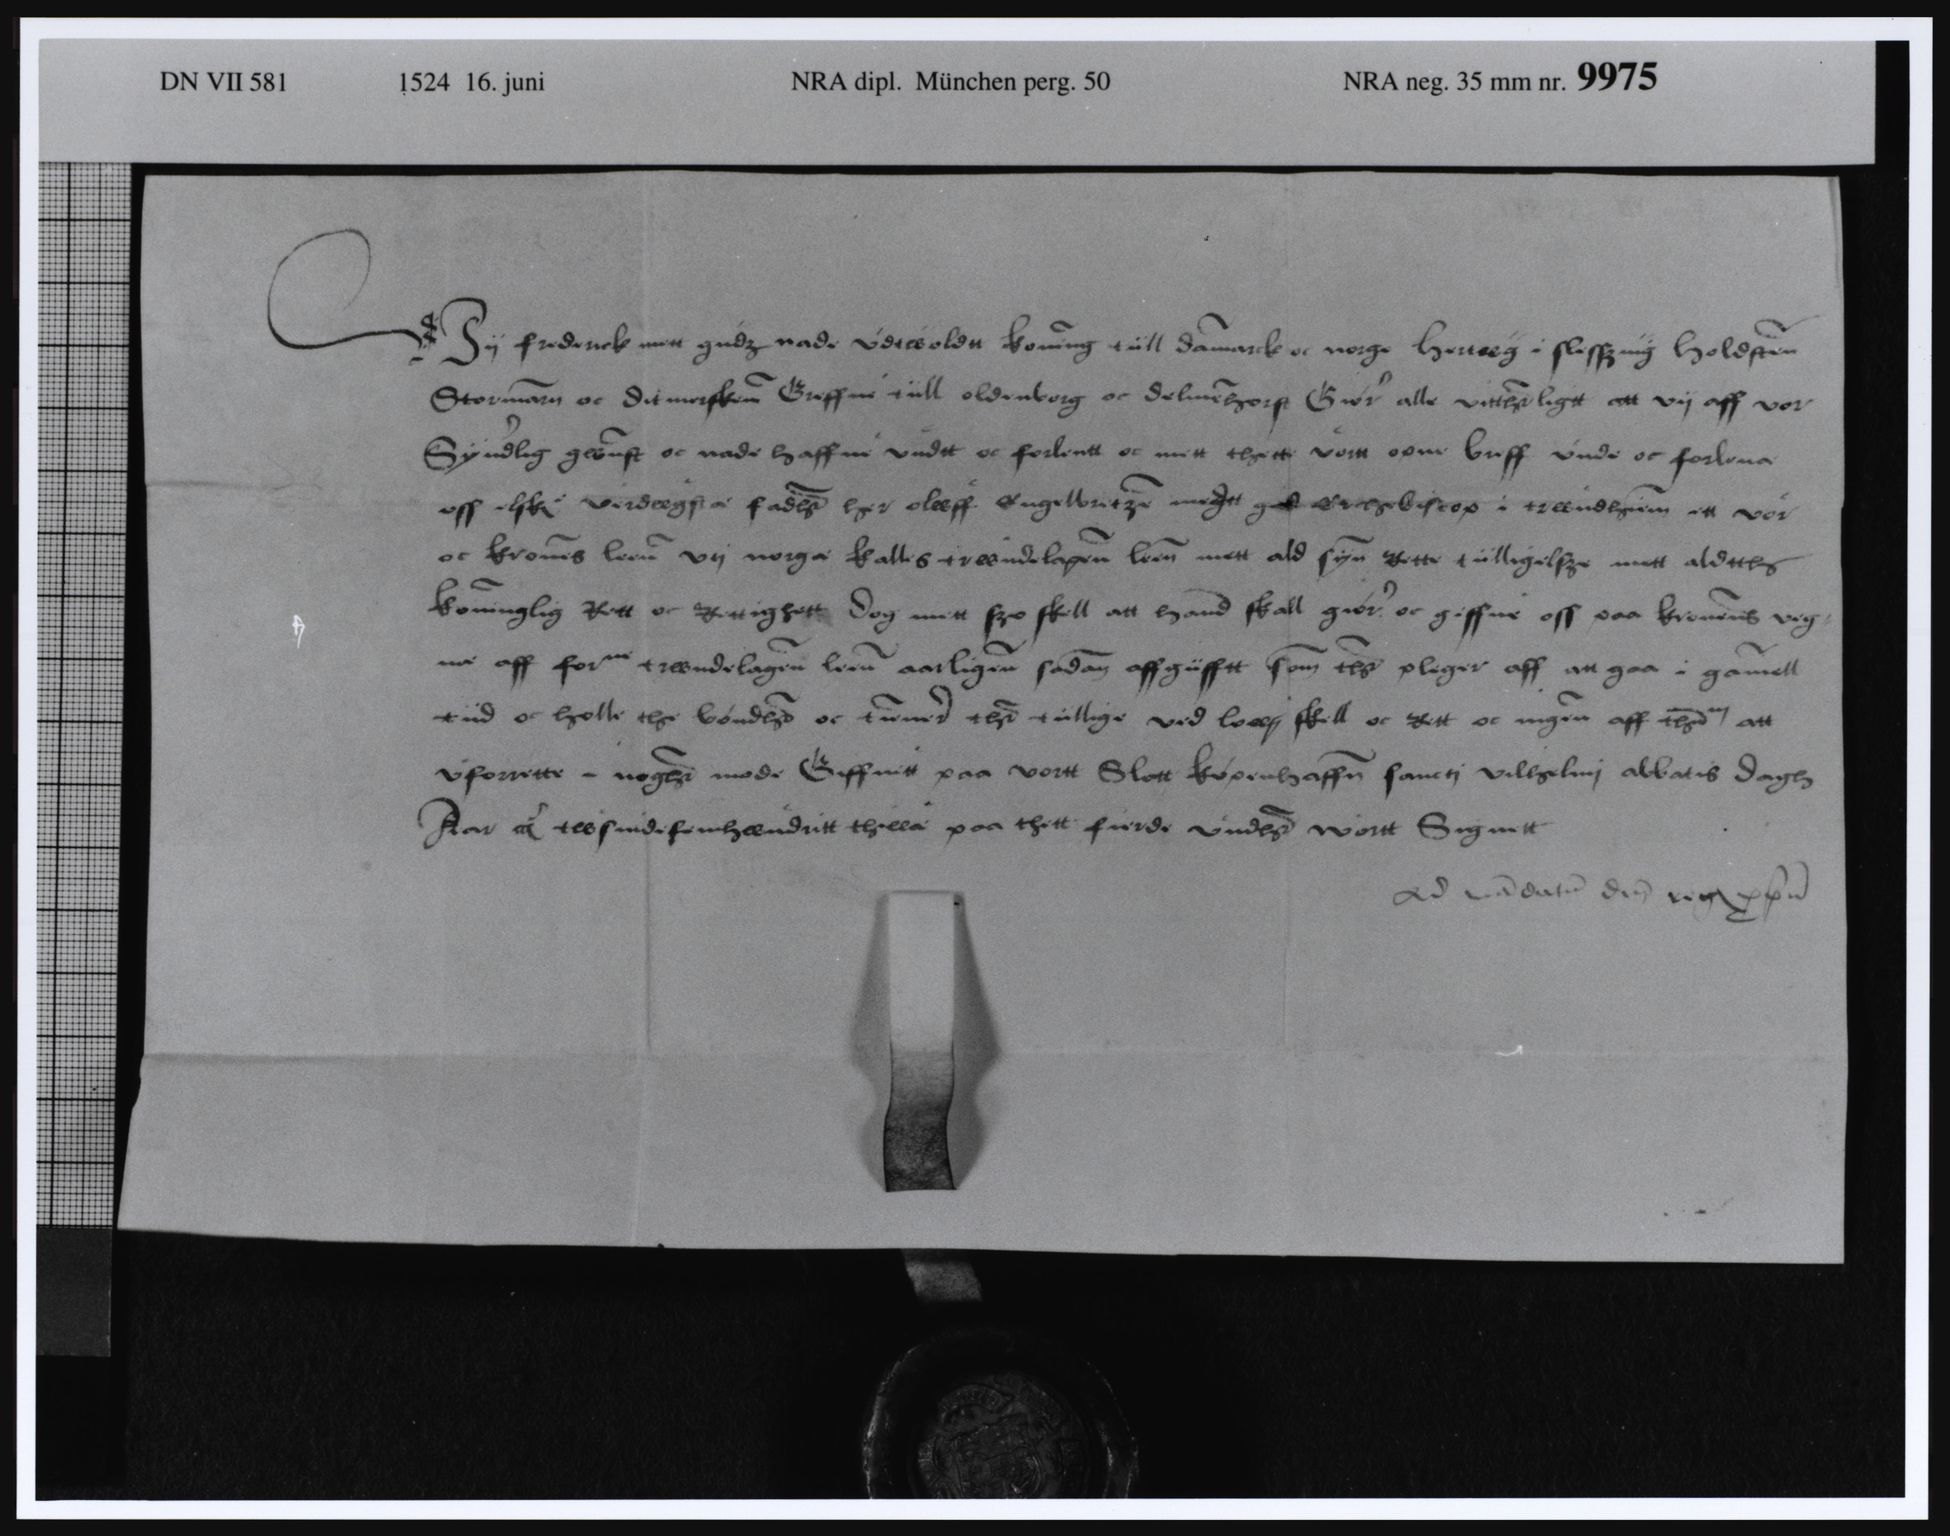 DN VII 581 1524 16. juni NRA dipl. München perg. 50 NRA neg. 35 mm nr. 9975
Vij frederick mett gudz nade vdtwoldtt konīng tüll dāmarck oc norge hertwg i slesszuig holdstēn
Stormarn oc ditmerskenn Greffue tüll oldenborg oc delmēhorst Giør alle vittherligtt att vij aff vor
Syndrlig gwnst oc nade haffue vndtt oc forlentt oc mett thette vortt opne breff vnde oc forlene
oss elske verdwgste fadher her olwff Engelbretzen mett gud Erchebiscop i trwndhiem ett vor
oc kronēs leen vij norge kalles trwndelagen leen mett ald syn Rette tülligelsze mett aldtthz
konīnglig Rett oc Rettighett Dog mett szo skell att hand skall giøre oc giffue oss paa kronēns veg-
ne aff forne trwndelagen leen aarligen sadan affgüfftt som ther pleger aff att gaa i gāmell
tüd oc holle the bøndher oc tienere ther tüllige ved lwgj skell oc Rett oc ingen aff thēm att
vforrette i nogher mode Giffuitt paa vortt Slott køpenhaffn sanctj vilhelmj abbatis dagh
Aar etc twsindefemhwndritt thiwe paa thett fierde vndher wortt Signett
Ad mādatū dnj regis pp̄riū